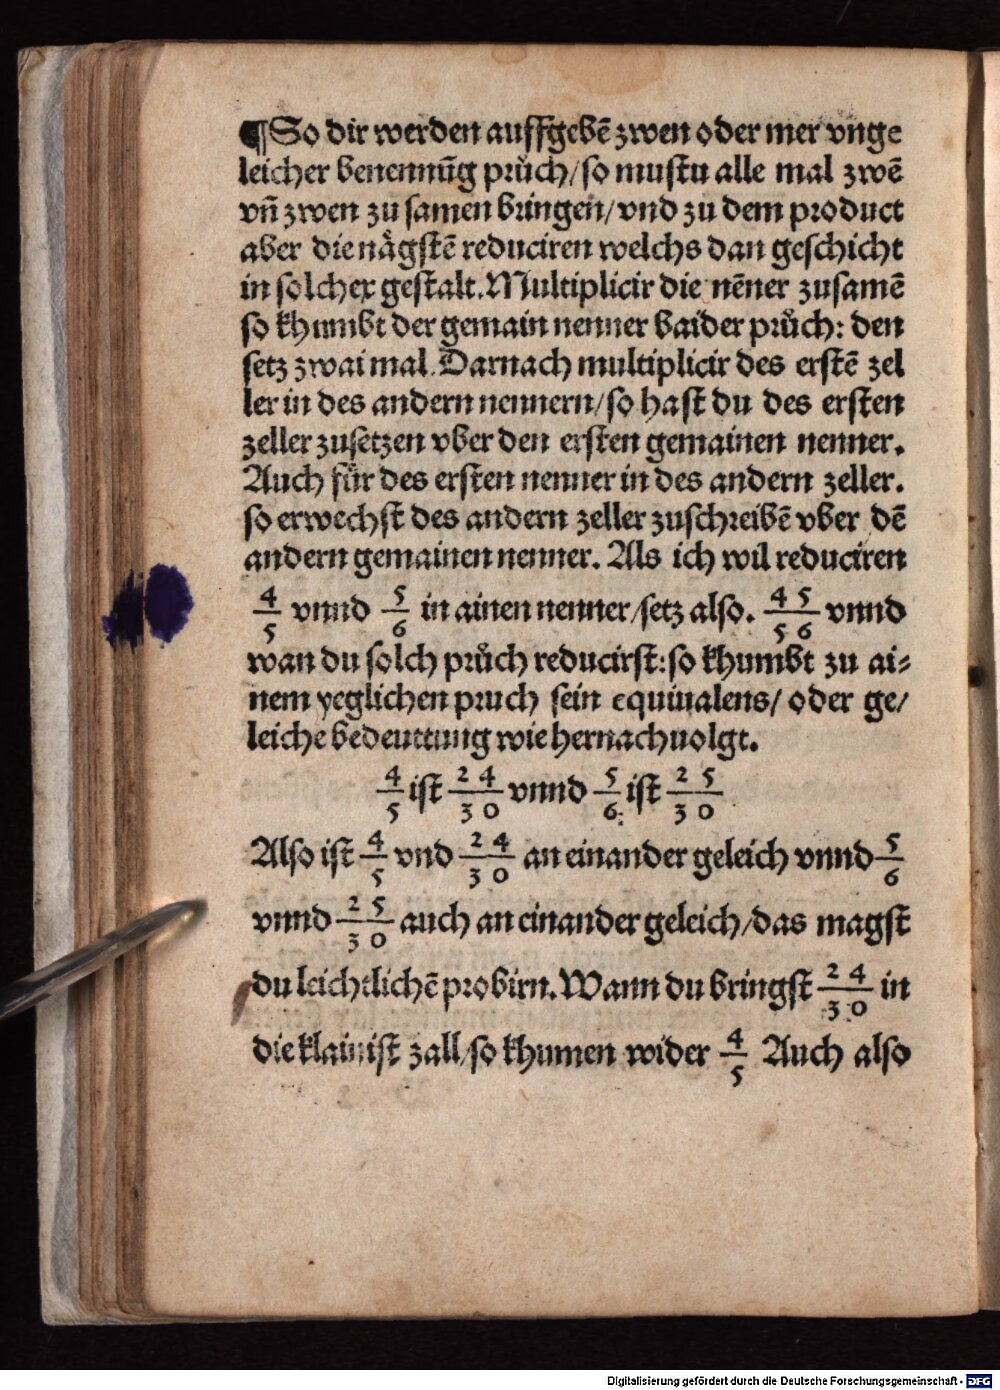 ¶So dir werden auffgebē zwen oder mer vnge
leicher benennūg prüch/so mustu alle mal zwē
vn̄ zwen zu samen bringen/vnd zu dem product
aber die nägstē reduciren welchs dan geschicht
in solcher gestalt. Multiplicir die nēner zusamē
so khumbt der gemain nenner baider prüch: den
setz zwai mal. Darnach multiplicir des erstē zel
ler in des andern nennern/so hast du des ersten
zeller zusetzen vber den ersten gemainen nenner.
Auch für des ersten nenner in des andern zeller.
so erwechst des andern zeller zuschreibē vber dē
andern gemainen nenner. Als ich wil reduciren
4/5 vnnd 5/6 in ainen nenner/setz also. 4 5/5 6 vnnd
wan du solch prüch reducirst: so khumbt zu ai⸗
nem yeglichen pruch sein equiualens/ oder ge/
leiche bedeuttung wie hernachuolgt.
4/5 ist 24/30 vnnd 5/6 ist 25/30
Also ist 4/5 vnd 24/30 an einander geleich vnnd 5/6
vnnd 25/30 auch an einander geleich/das magst
du leichtlichē probirn. Wann du bringst 24/30 in
die klainist zall/so khumen wider 4/5 Auch also
Digitalisierung gefördert durch die Deutsche Forschungsgemeinschaft - DFG